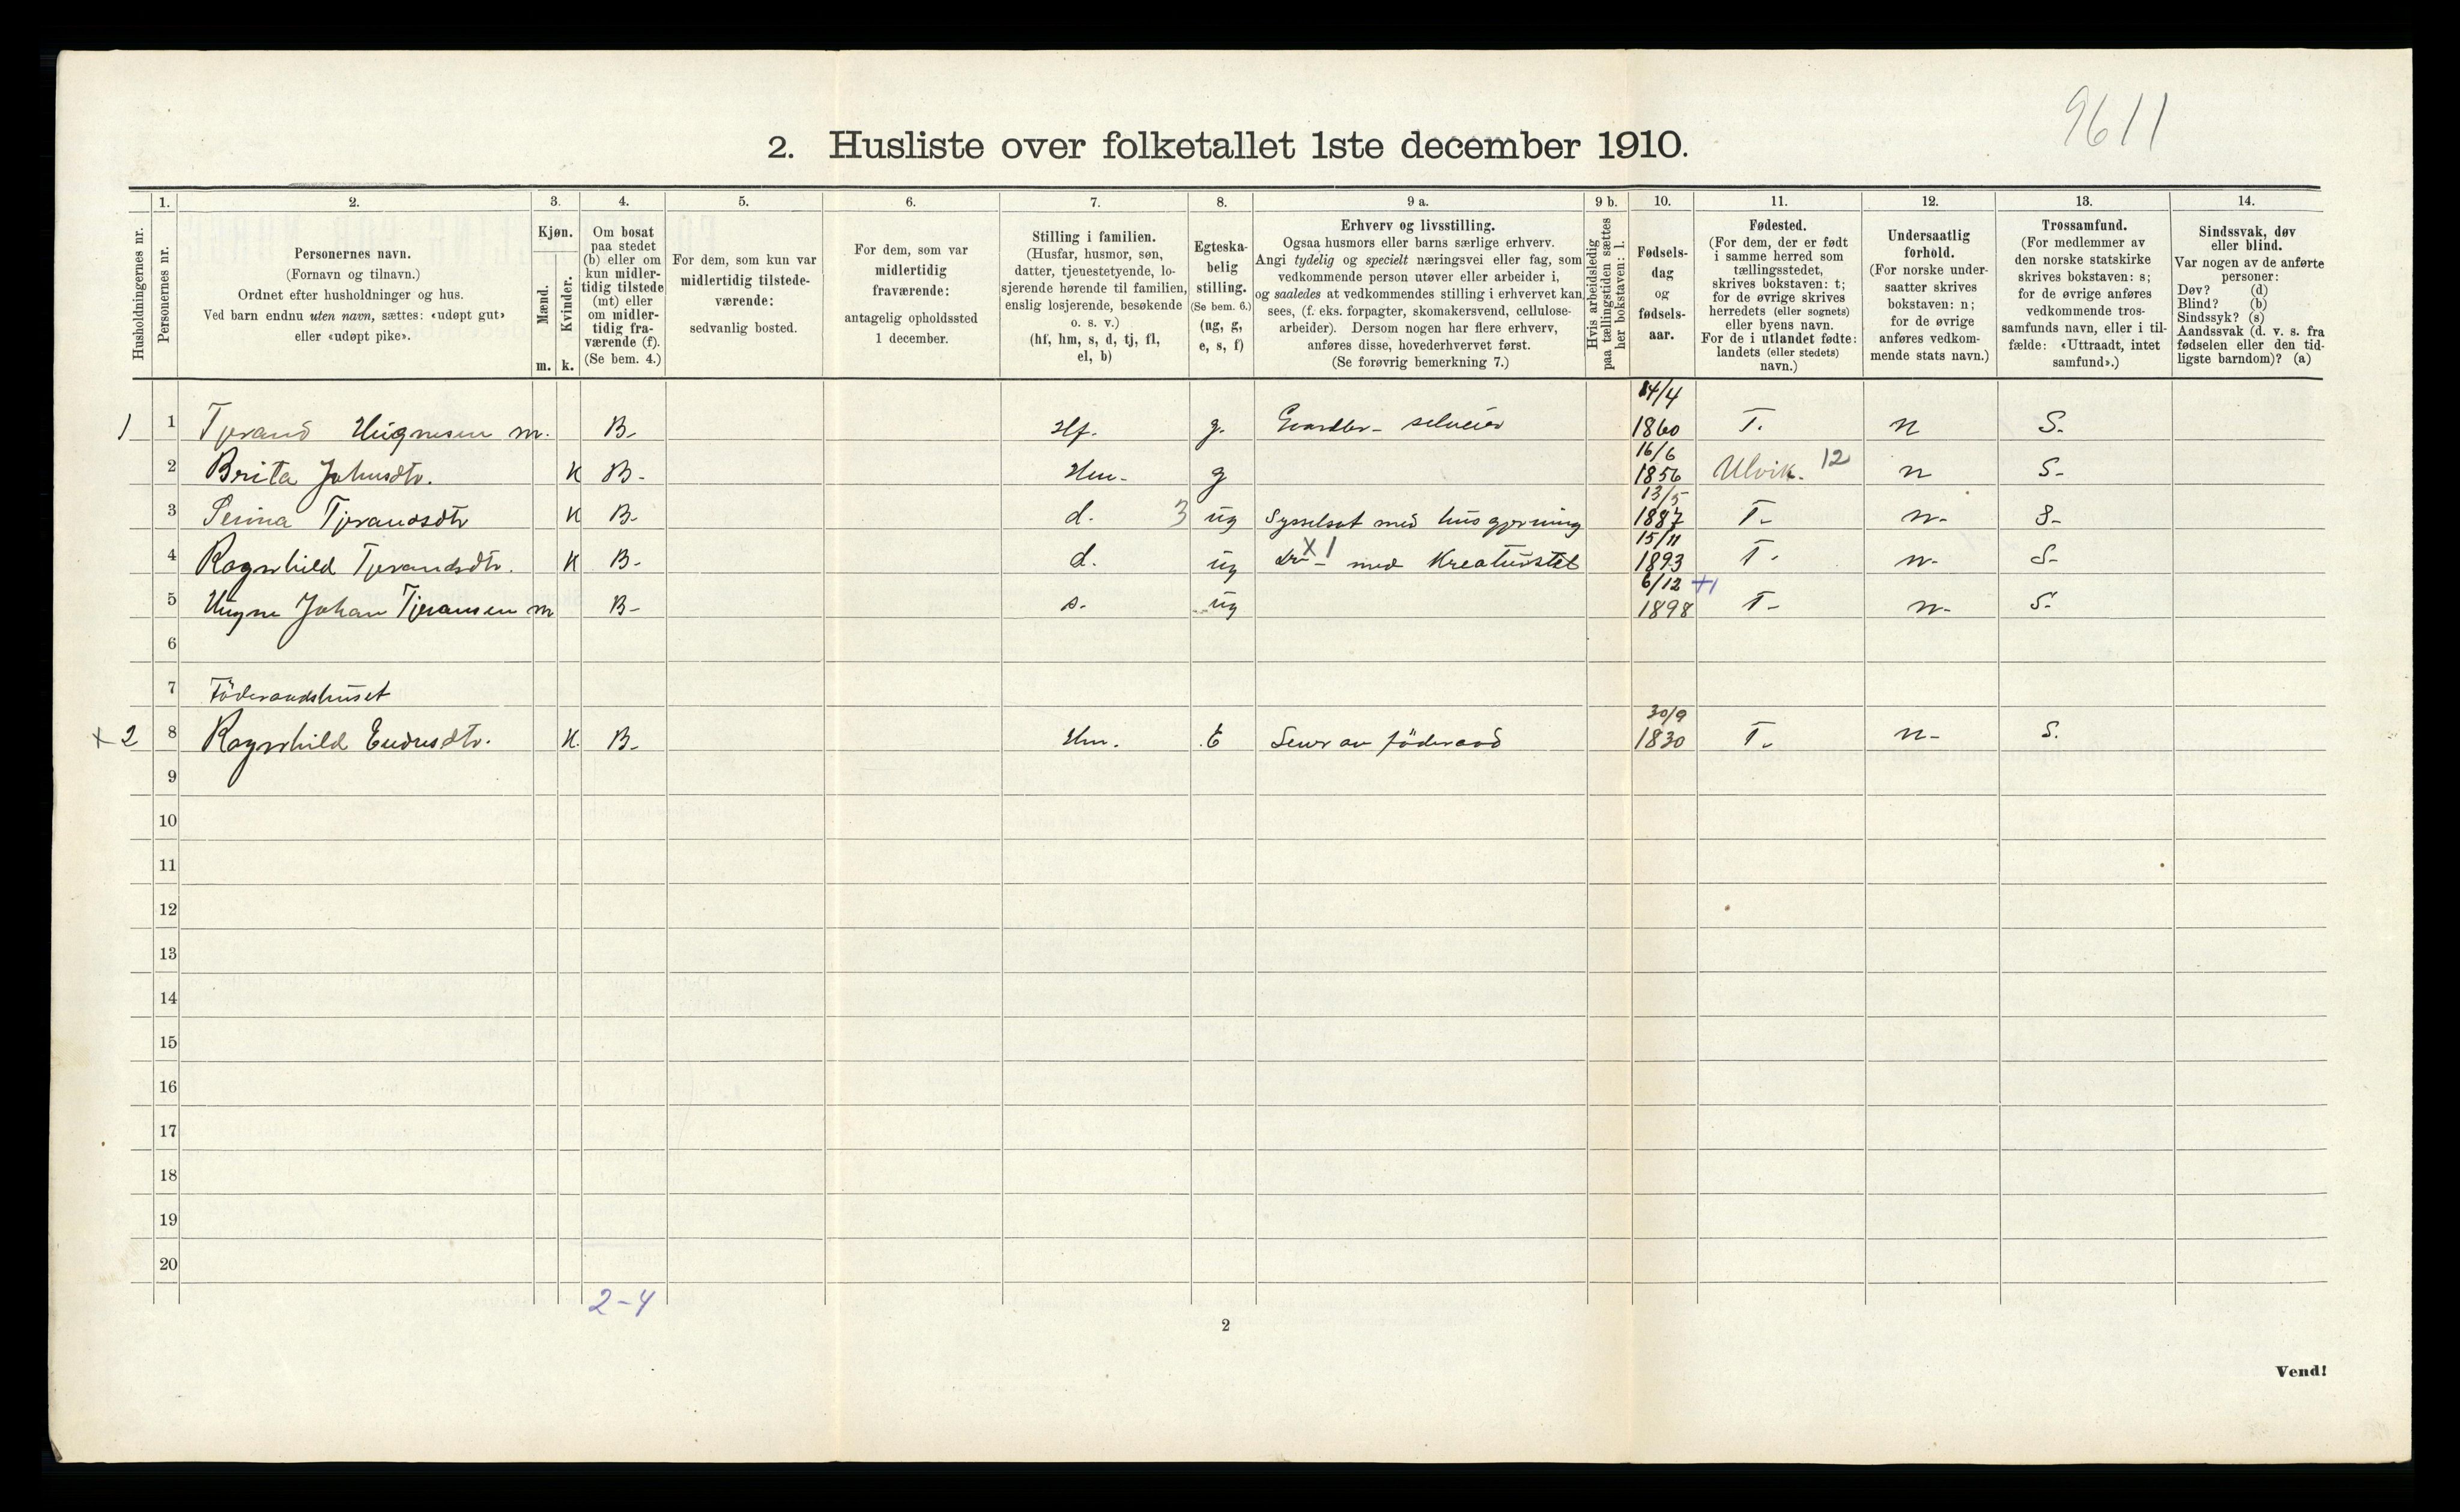 9611
2. Husliste over folketallet 1ste december 1910.
Husholdningernes nr.
1.
Personernes nr.
2.
Personernes navn.
(Fornavn og tilnavn.)
Ordnet efter husholdninger og hus.
Ved barn endnu uten navn, sættes: «udøpt gut»
eller «udøpt pike».
3.
Kjøn.
Mænd.
Kvinder.
m. k.
4.
Om bosat
paa stedet
(b) eller om
kun midler-
tidig tilstede
(mt) eller
om midler-
tidig fra-
værende (f).
(Se bem. 4.)
5.
For dem, som kun var
midlertidig tilstede-
værende:
sedvanlig bosted.
6.
For dem, som var
midlertidig
fraværende:
antagelig opholdssted
1 december.
7.
Stilling i familien.
(Husfar, husmor, søn,
datter, tjenestetyende, lo-
sjerende hørende til familien,
enslig losjerende, besøkende
o. s. v.)
(hf, hm, s, d, tj, fl,
el, b)
8.
Egteska-
belig
stilling.
(Se bem. 6.)
(ug, g,
e, s, f)
9 a.
Erhverv og livsstilling.
Ogsaa husmors eller barns særlige erhverv.
Angi tydelig og specielt næringsvei eller fag, som
vedkommende person utøver eller arbeider i,
og saaledes at vedkommendes stilling i erhvervet kan
sees, (f. eks. forpagter, skomakersvend, cellulose-
arbeider). Dersom nogen har flere erhverv,
anføres disse, hovederhvervet først.
(Se forøvrig bemerkning 7.)
9 b.
Hvis arbeidsledig
paa tællingstiden sættes
her bokstaven: l.
10.
Fødsels-
dag
og
fødsels-
aar.
11.
Fødested.
(For dem, der er født
i samme herred som
tællingsstedet,
skrives bokstaven: t;
for de øvrige skrives
herredets (eller sognets)
eller byens navn.
For de i utlandet fødte:
landets (eller stedets)
navn.)
12.
Undersaatlig
forhold.
(For norske under-
saatter skrives
bokstaven: n;
for de øvrige
anføres vedkom-
mende stats navn.)
13.
Trossamfund.
(For medlemmer av
den norske statskirke
skrives bokstaven: s;
for de øvrige anføres
vedkommende tros-
samfunds navn, eller i til-
fælde: «Uttraadt, intet
samfund».)
14.
Sindssvak, døv
eller blind.
Var nogen av de anførte
personer:
Døv? (d)
Blind? (b)
Sindssyk? (s)
Aandssvak (d. v. s. fra
fødselen eller den tid-
ligste barndom)? (a)
1 1 m. B. Hf. g. selveier 14/4 1860 T. n S.
2 Brita Johnsdtr. K B. Hm. g 16/6 1856 Ulvik. 12 n S.
3 K B. d. 3 ug Sysselsat med husgjerning 13/5 1887 T. n. S.
4 Ragnhild Tjerandsdtr. K B. d. ug X 1 med Kreaturstel 15/11 1893 T. n. S.
5 Johan m B. s. ug 6/12 +1 1898 T. n. S.
6
7 Föderaadshuset
x 2 8 Ragnhild Endresdtr. K. B. Hm. E Lever av föderaad 30/9 1830 T. n. S.
9
10
11
12
13
14
15
16
17
18
19
20
2-4
2
Vend!